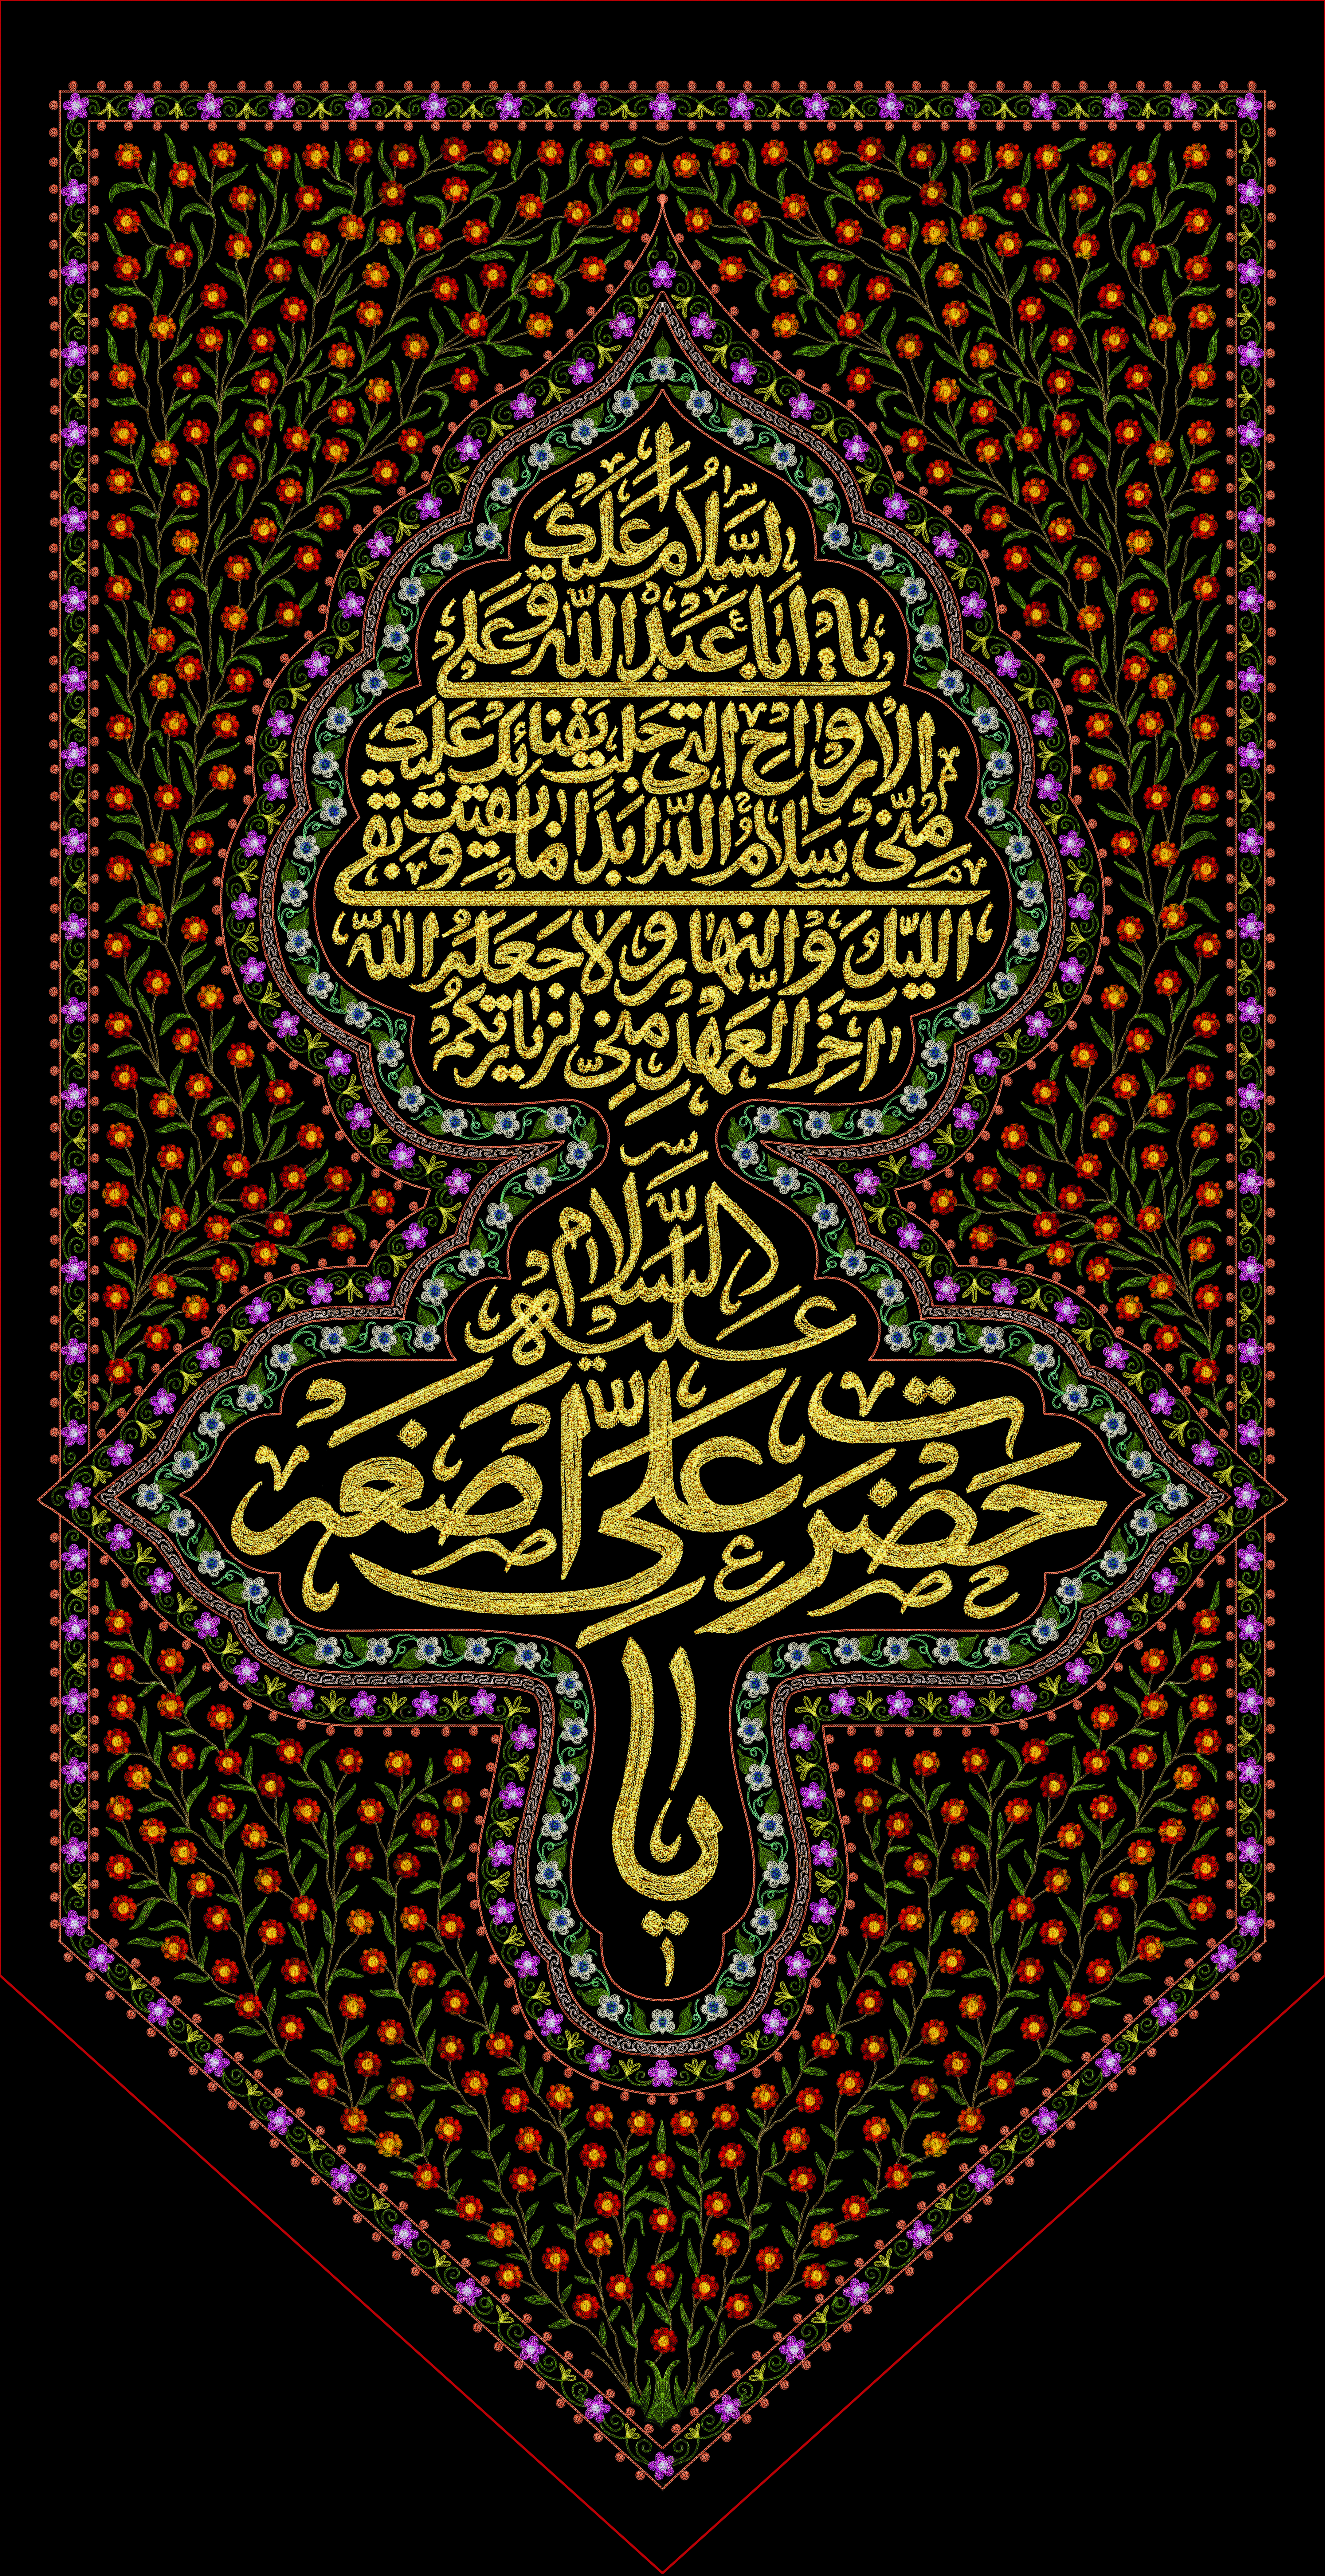 السلام عليك
يا ابا عبد الله وعلى
الارواح التي حلت بفنائك عليك
مني سلام الله ابدا ما بقيت وبقي
الليل والنهار ولا جعله الله
آخر العهد مني لزيارتكم
السلام
عليه
حضرت علی اصغر
یا